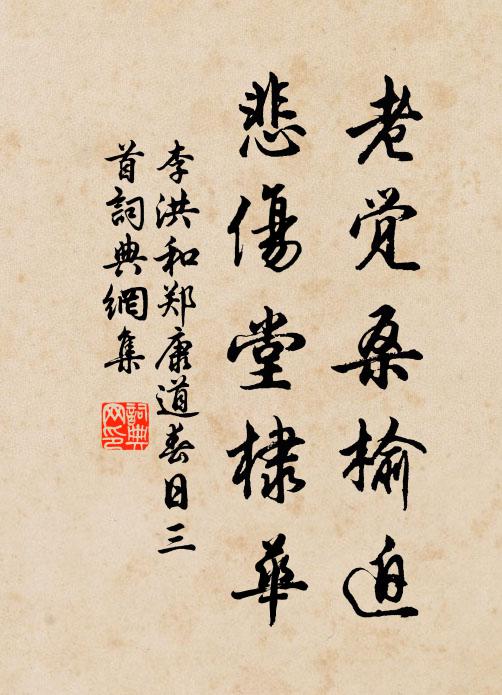 老觉桑榆迫
悲傷堂棣華
李洪和郑康道春日三
首詞典網集
詞典网印